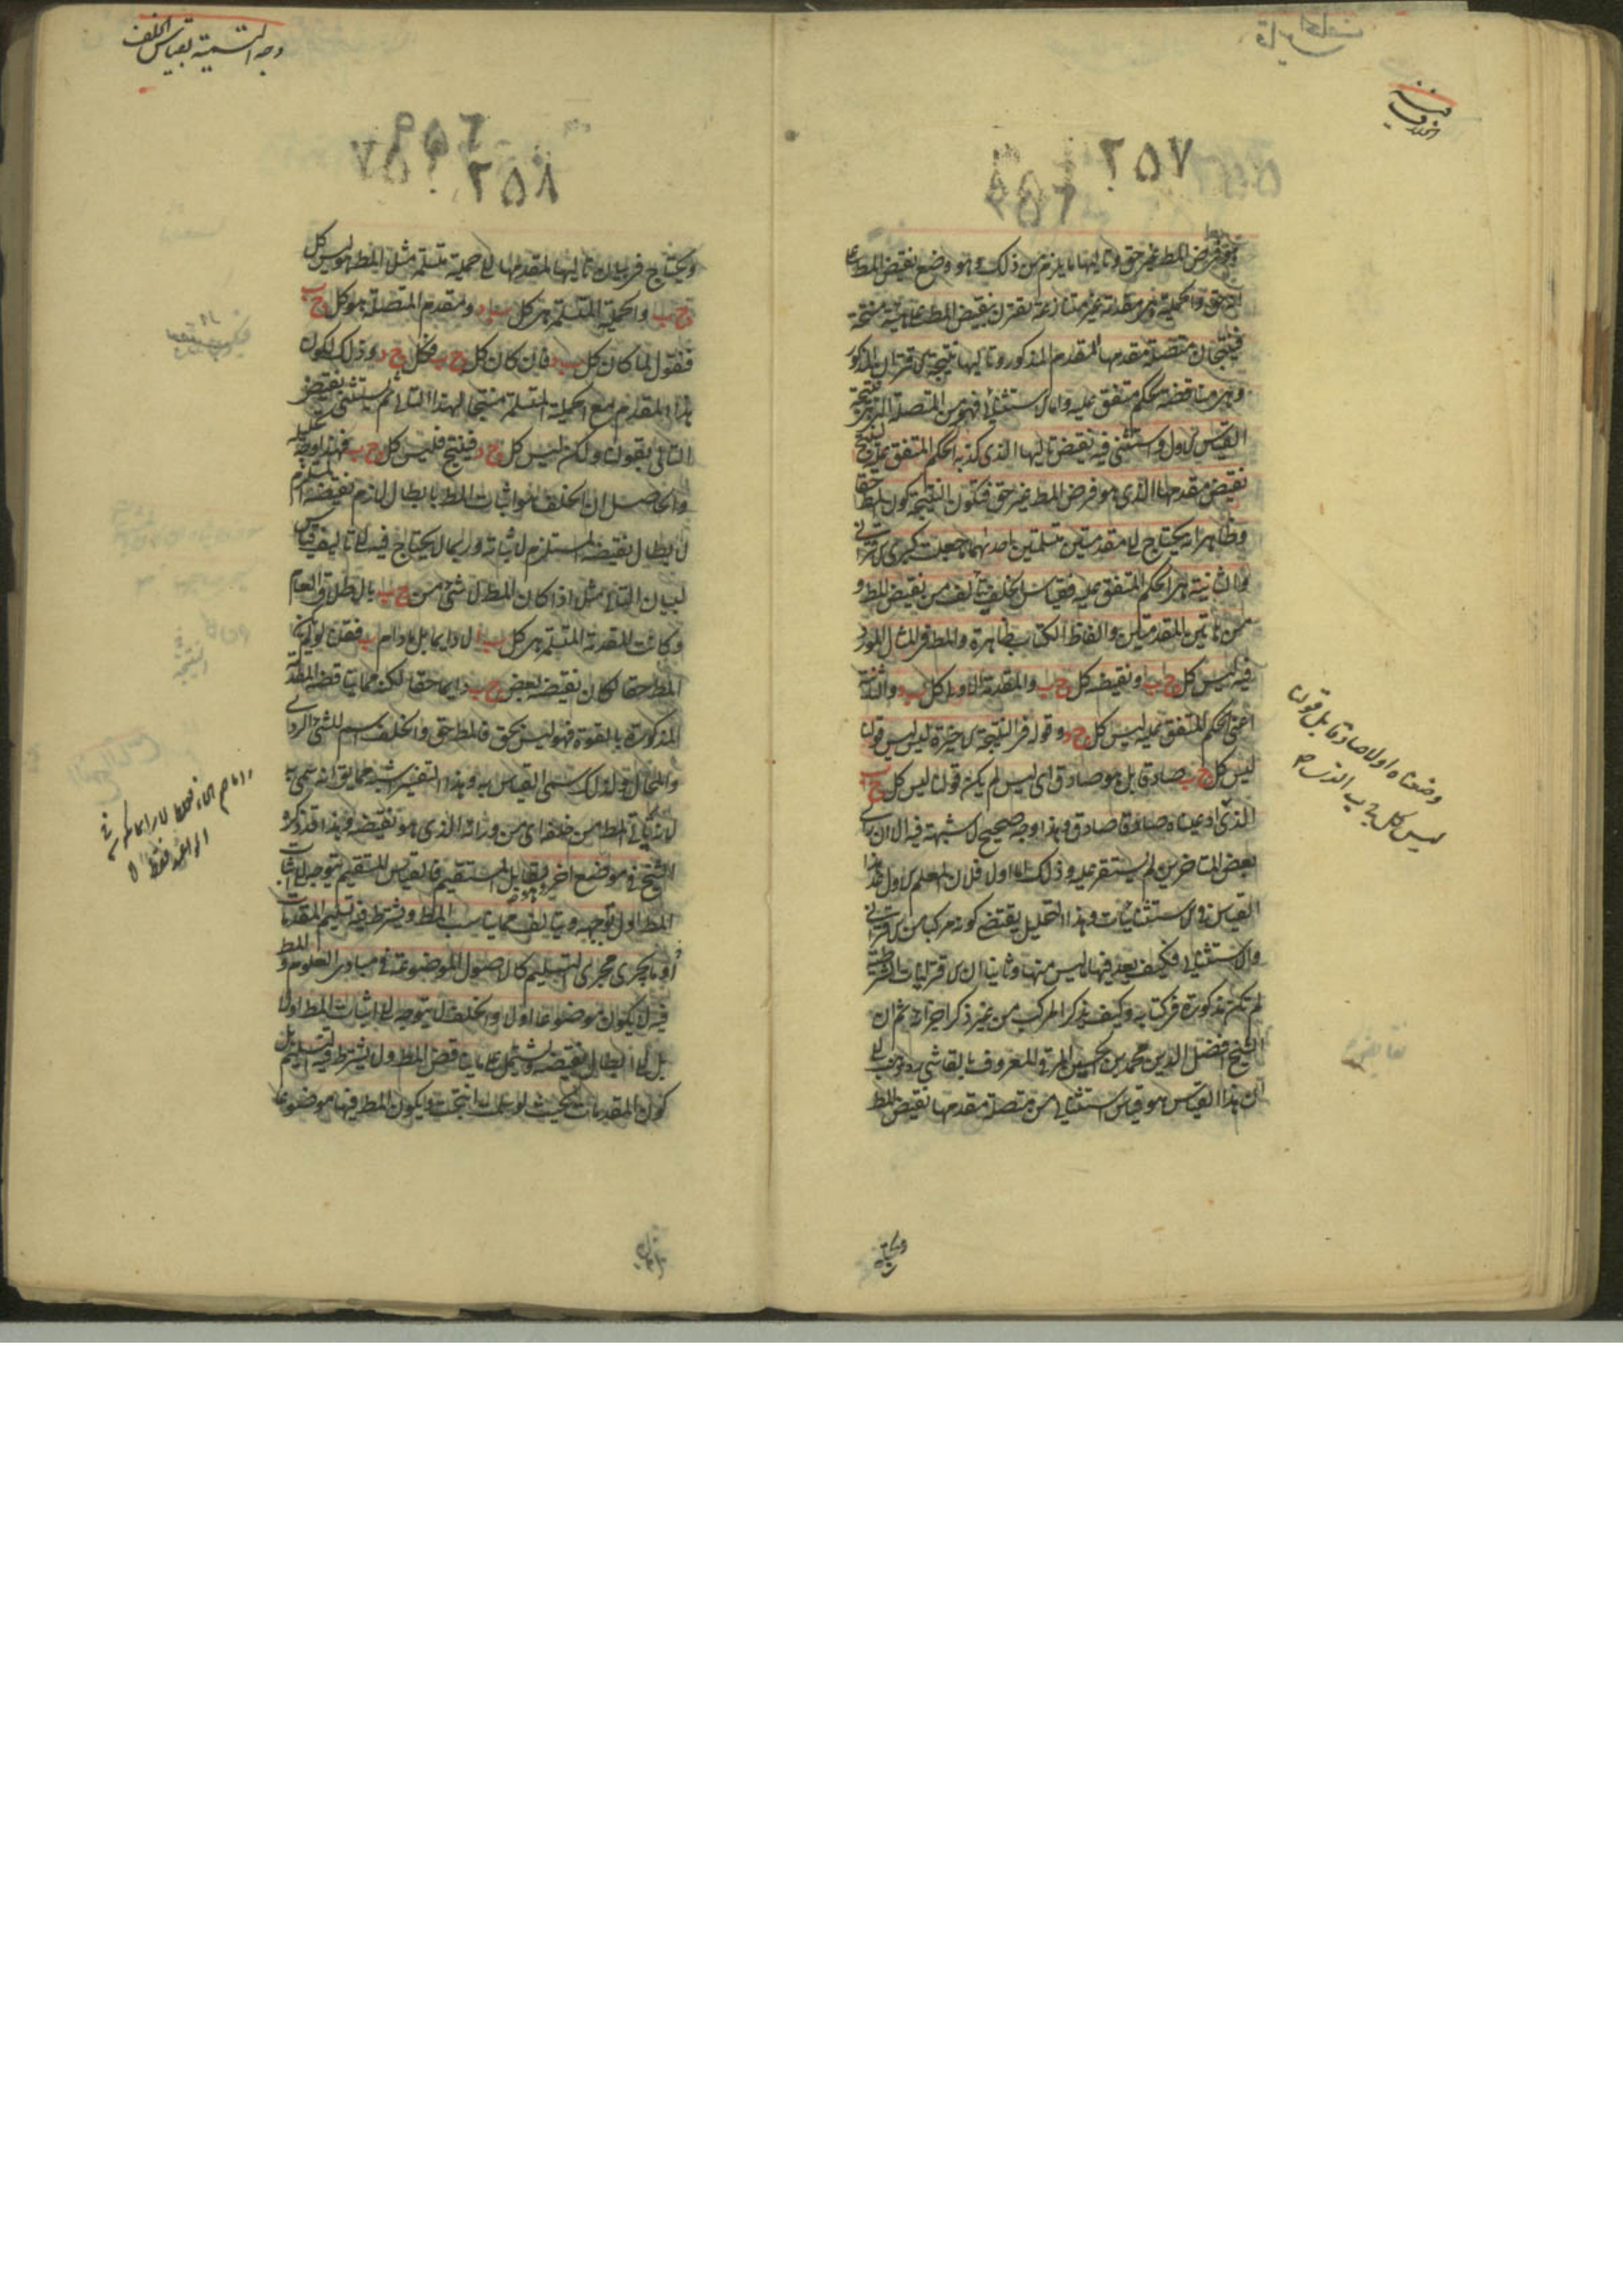 قياس الخلف
٢٥٧
هو فرض المط غير حق وتاليها ما يلزم من ذلك وهو وضع نقيض المط على
انه حق والحملية هي مقدمة غير متنازعة تقترن بنقيض المط على هيئة منتجة
فينتجان متصلة مقدمها المقدم المذكور وتاليها نتيجة الاقتران المذكور
وهي مناقضة لحكم متفق عليه واما الاستثنائي فهو من المتصلة التي هي نتيجة
القياس الاول ويستثنى فيه نقيض تاليها الذي كذبه الحكم المتفق عليه لينتج
نقيض مقدمها الذي هو فرض المط غير حق فتكون النتيجة كون المط حقا
وظاهر انه يحتاج الى مقدمتين متسلمتين احدهما جعلت كبرى الاقتراني
والثانية هي الحكم المتفق عليه فقياس الخلف يتألف من نقيض المط و
من هاتين المقدمتين والفاظ الكتاب ظاهرة والمط في المثال المورد
فيه ليس كل ج ب ونقيضه كل ج ب والمقدمة الاولى كل ب د والثانية
اعني الحكم المتفق عليه ليس كل ج د وقوله في النتيجة الاخيرة ليس ليس قولنا
ليس كل ج ب صادق بل هو صادق اى ليس لم يكن قولنا ليس كل ج ب
الذي ادعيناه صادقا صادق وهذا وجه صحيح لا شبهة فيه الا ان راى
بعض المتاخرين لم يستقر عليه وذلك اما اولا فلان المعلم الاول عد هذا
القياس في الاستثنائيات وهذا التحليل يقتضي كونه مركبا من الاقتراني
والاستثنائي فكيف يعد فيها ما ليس منها وثانيا ان الاقترانيات الشرطية
لم تكن مذكورة في كتابه وكيف يذكر المركب من غير ذكر اجزائه ثم ان
الشيخ افضل الدين محمد بن حسن المرقي المعروف بالقاشي ره ذهب الى
ان هذا القياس هو قياس استثنائي من متصلة مقدمها نقيض المط
وضعناه اولا صادقا بل قولنا
ليس كل ج ب الذي
وجه التسمية بقياس الخلف
٢٥٨
ويحتاج في بيان تاليها لمقدمها الى حملية متسلمة مثلا المط هو ليس كل
ج ب والحملية المتسلمة هي كل ب د ومقدم المتصلة هو كل ج ب
فنقول لما كان كل ب د فان كان كل ج ب فكل ج د وذلك لكون
هذا المقدم مع الحملية المتسلمة منتجا لهذا التالي ثم يستثنى نقيض
التالي بقولنا ولكن ليس كل ج د فينتج فليس كل ج ب فهذا وجه تحليله
والحاصل ان الخلف هو اثبات المط بابطال لازم نقيضه المستلزم
لابطال نقيضه المستلزم لاثباته وربما لا يحتاج فيه الى تاليف قياس
لبيان التالي مثلا اذا كان المط لا شئ من ج ب بالاطلاق العام
وكانت المقدمة المتسلمة هي كل ب ا لا دايما بل ما دام ب فقلنا لو لم يكن
المط حقا لكان نقيضه بعض ج ب دايما حقا لكنه مما يناقضه المقدمة
المذكورة بالقوة فهو ليس بحق فالمط حق والخلف اسم للشئ الردى
والمحال ولذلك سمى القياس به وهذا التفسير اشبه مما يق انه سمى به
لانه ياتي المط من خلفه اى من ورائه الذي هو نقيضه وهذا قد ذكره
الشيخ في موضع اخر ويقابل المستقيم فالقياس المستقيم يتوجه الى اثبات
المط اول توجهه ويتالف مما يناسب المط ويشترط فيه تسليم المقدمات
او ما يجرى مجرى التسليم كالاصول الموضوعة في مبادى العلوم والمط
فيه لا يكون موضوعا اولا والخلف لا يتوجه الى اثبات المط اولا
بل الى ابطال نقيضه ويشتمل على ما يناقض المط ولا يشترط فيه تسليم
كون المقدمات بحيث لو سلمت انتجت ويكون المط فيها موضوعا